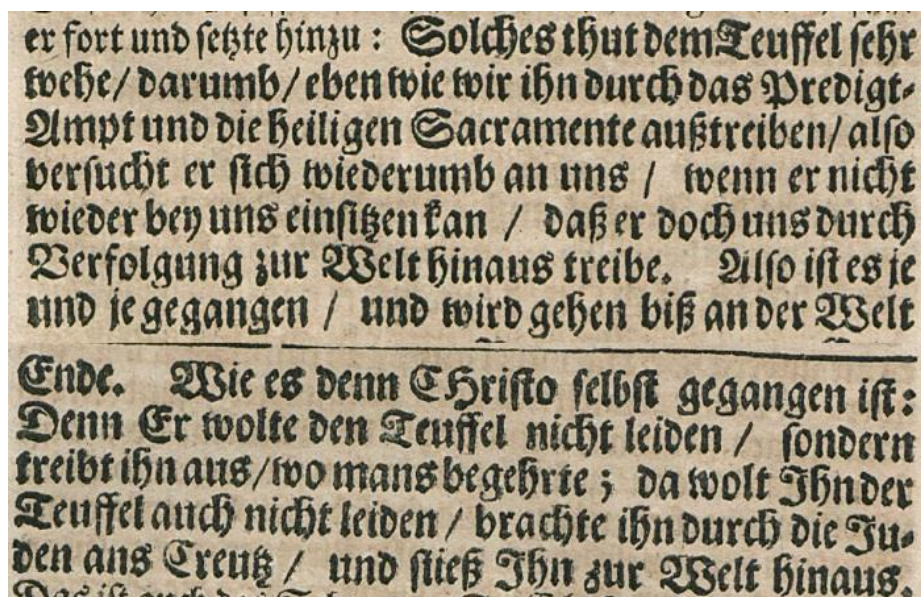 er fort und setzte hinzu: Solches thut dem Teuffel sehr
wehe/ darumb/ eben wie wir ihn durch das Predigt-
Ampt und die heiligen Sacramente außtreiben/ also
versucht er sich wiederumb an uns / wenn er nicht
wieder bey uns einsitzen kan / daß er doch uns durch
Verfolgung zur Welt hinaus treibe. Also ist es je
und je gegangen / und wird gehen biß an der Welt
Ende. Wie es denn CHristo selbst gegangen ist:
Denn Er wolte den Teuffel nicht leiden / sondern
treibt ihn aus/ wo mans begehrte; da wolt Ihn der
Teuffel auch nicht leiden / brachte ihn durch die Ju-
den ans Creutz / und stieß Ihn zur Welt hinaus.
Das ist auch des